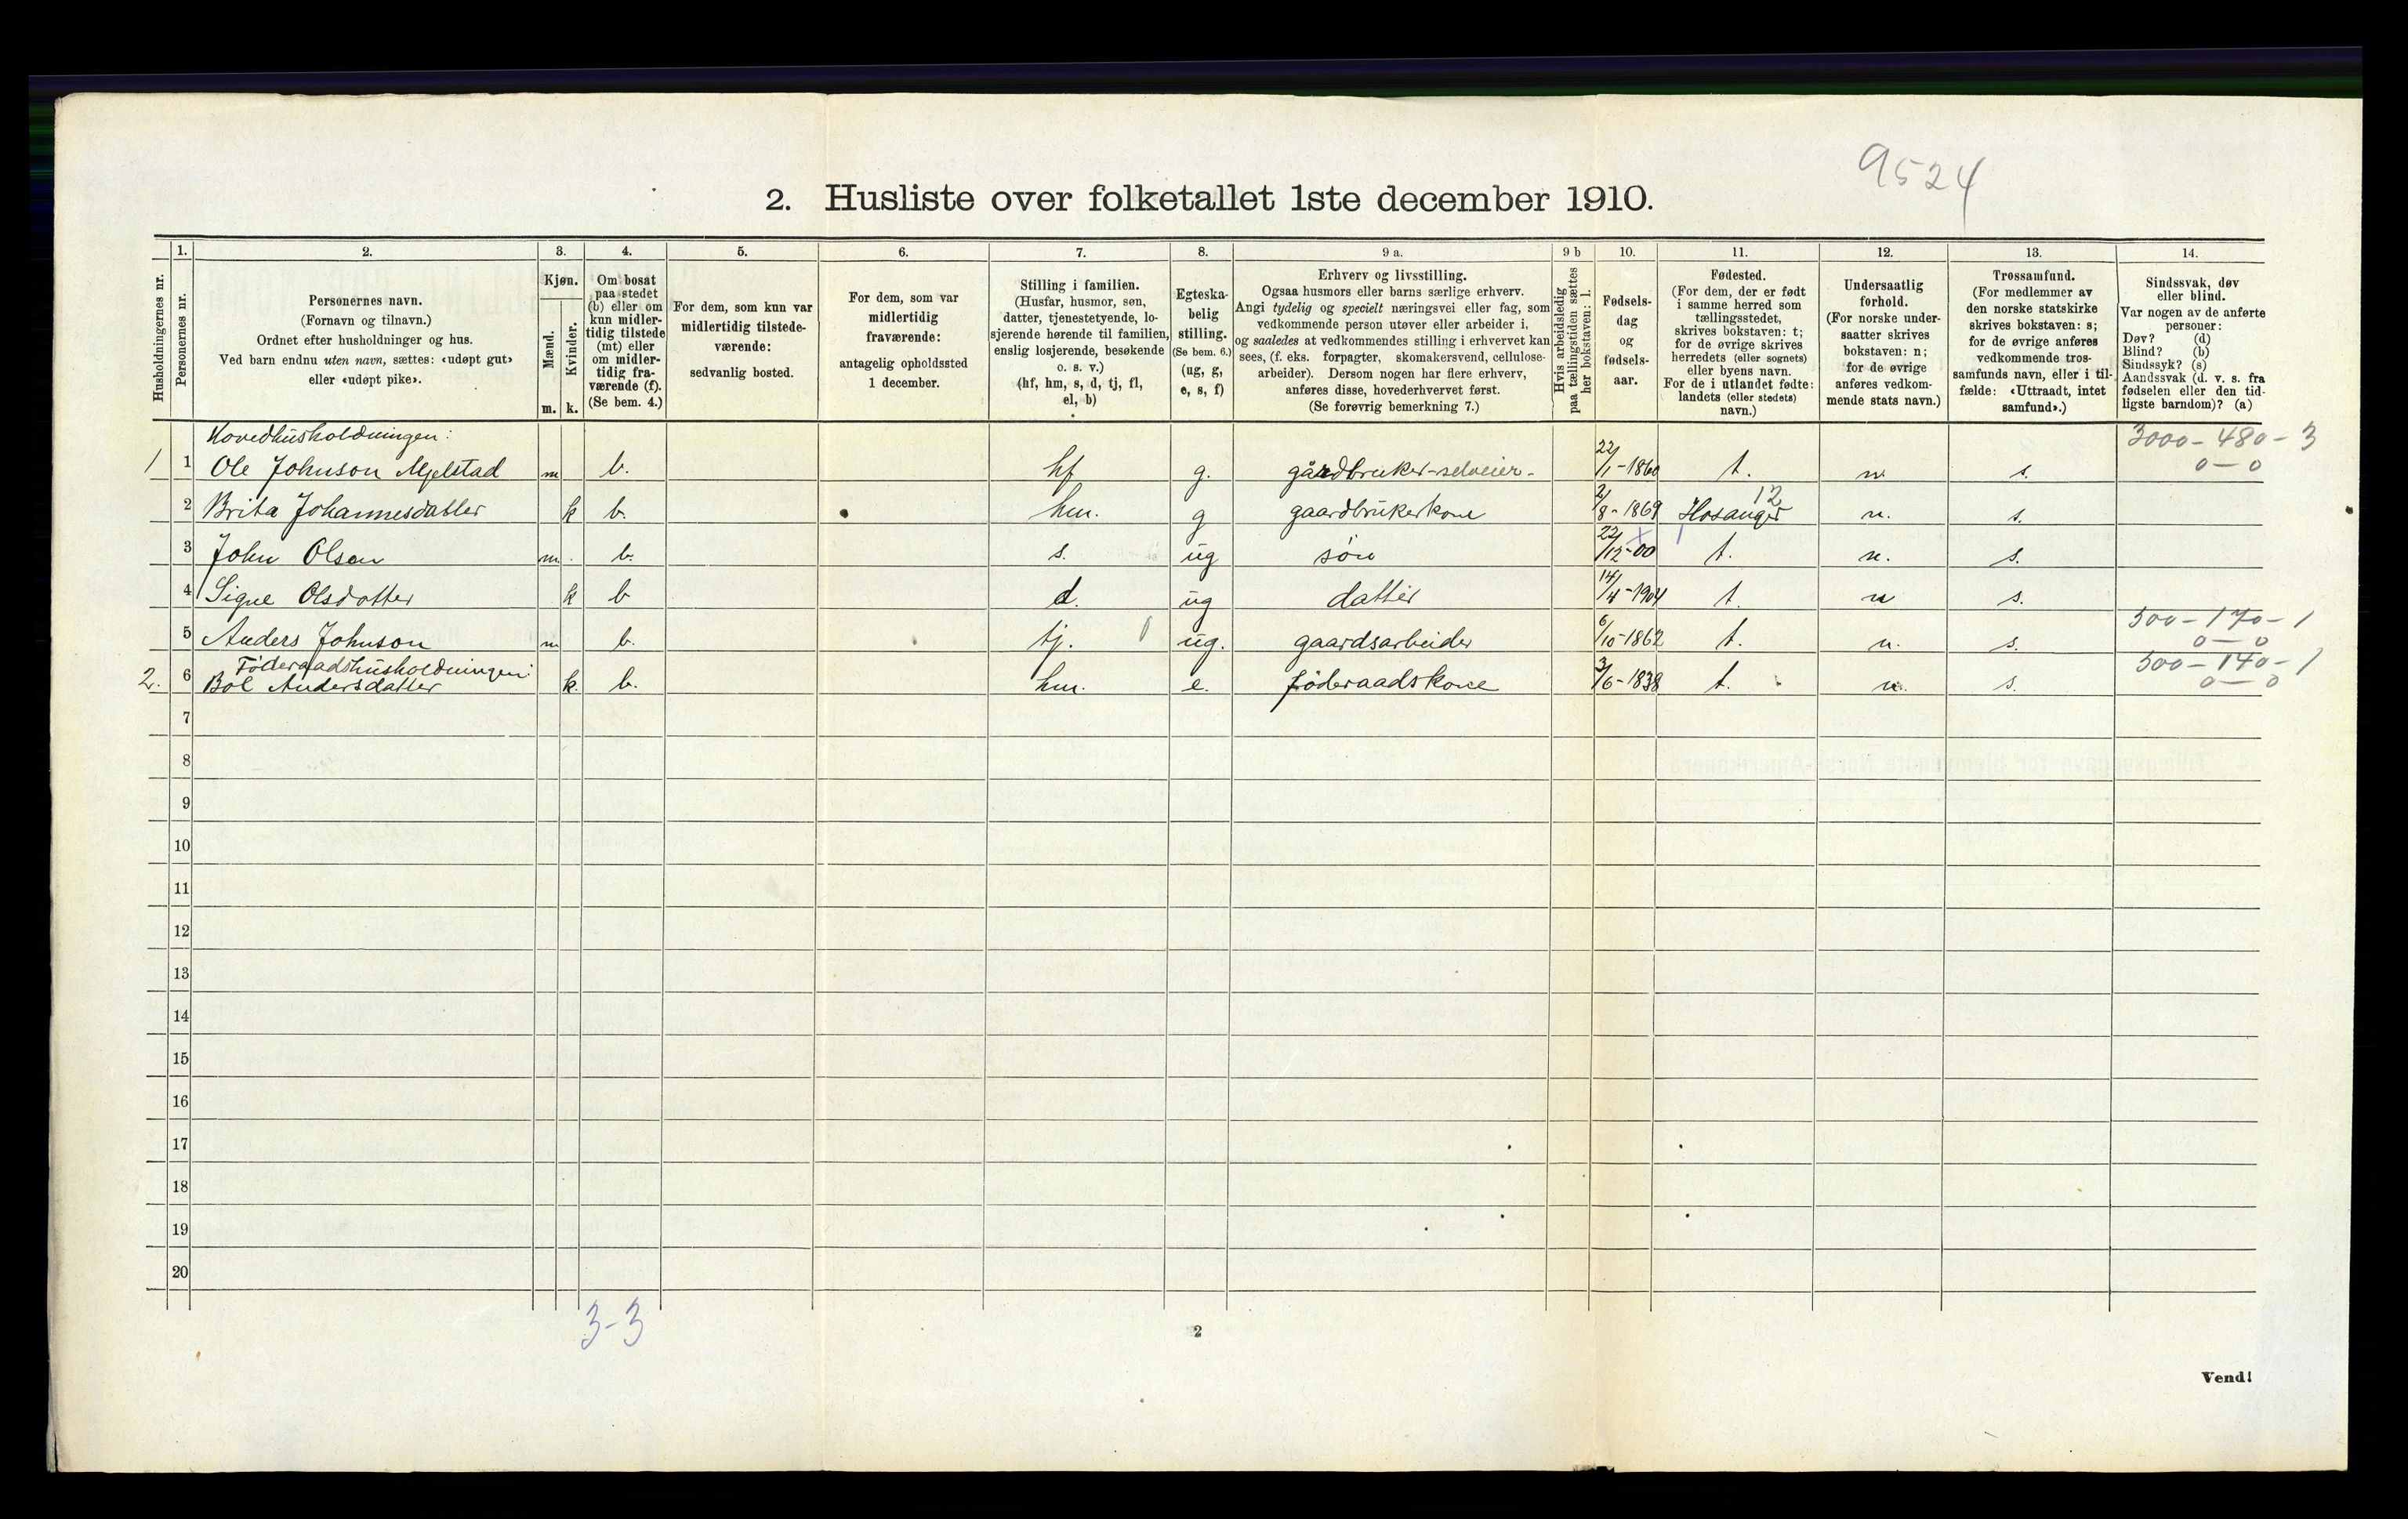 9524
2. Husliste over folketallet 1ste december 1910.
1. 2. 3. 4. 5. 6. 7. 8. 9 a. 9 b 10. 11. 12. 13. 14.
Husholdningernes nr.
Personernes nr.
Personernes navn.
(Fornavn og tilnavn.)
Ordnet efter husholdninger og hus.
Ved barn endnu uten navn, sættes: «udøpt gut»
eller «udøpt pike».
Kjøn.
Mænd.
Kvinder.
m. k.
Om bosat
paa stedet
(b) eller om
kun midler-
tidig tilstede
(mt) eller
om midler-
tidig fra-
værende (f).
(Se bem. 4.)
For dem, som kun var
midlertidig tilstede-
værende:
sedvanlig bosted.
For dem, som var
midlertidig
fraværende:
antagelig opholdssted
1 december.
Stilling i familien.
(Husfar, husmor, søn,
datter, tjenestetyende, lo-
sjerende hørende til familien,
enslig losjerende, besøkende
o. s. v.)
(hf, hm, s, d, tj, fl,
el, b)
Egteska-
belig
stilling.
(Se bem. 6.)
(ug, g,
e, s, f)
Erhverv og livsstilling.
Ogsaa husmors eller barns særlige erhverv.
Angi tydelig og specielt næringsvei eller fag, som
vedkommende person utøver eller arbeider i,
og saaledes at vedkommendes stilling i erhvervet kan
sees, (f. eks. forpagter, skomakersvend, cellulose-
arbeider). Dersom nogen har flere erhverv,
anføres disse, hovederhvervet først.
(Se forøvrig bemerkning 7.)
Hvis arbeidsledig
paa tællingstiden sættes
her bokstaven: l.
Fødsels-
dag
og
fødsels-
aar.
Fødested.
(For dem, der er født
i samme herred som
tællingsstedet,
skrives bokstaven: t;
for de øvrige skrives
herredets (eller sognets)
eller byens navn.
For de i utlandet fødte:
landets (eller stedets)
navn.)
Undersaatlig
forhold.
(For norske under-
saatter skrives
bokstaven: n;
for de øvrige
anføres vedkom-
mende stats navn.)
Trossamfund.
(For medlemmer av
den norske statskirke
skrives bokstaven: s;
for de øvrige anføres
vedkommende tros-
samfunds navn, eller i til-
fælde: «Uttraadt, intet
samfund».)
Sindssvak, døv
eller blind.
Var nogen av de anførte
personer:
Døv? (d)
Blind? (b)
Sindssyk? (s)
Aandssvak (d. v. s. fra
fødselen eller den tid-
ligste barndom)? (a)
Hovedhusholdningen: 3000-480-3
1 1 Ole Johnson Mjelstad m b. hf g. gårdbruker-selveier- 22/1-1860 t. n. s. 0-0
2 Brita Johannesdatter k b. hm. g gaardbrukerkone 2/8-1869 Hosanger 12 n. s.
3 John Olsen m. b. s. ug søn 22/12-00 t. n. s.
4 Signe Olsdatter k b d. ug datter 14/4-1904 t. n s.
5 Anders Johnson m b. tj. 0 ug. gaardsarbeider 6/10-1862 t. n. s. 500-170-1 0-0
Føderaadshusholdningen:
2. 6 Bol Andersdatter k. b. hm. e. føderaadskone 3/6-1838 t. n. s. 500-140-1 0-0
7
8
9
10
11
12
13
14
15
16
17
18
19
20
3-3
2
Vend!